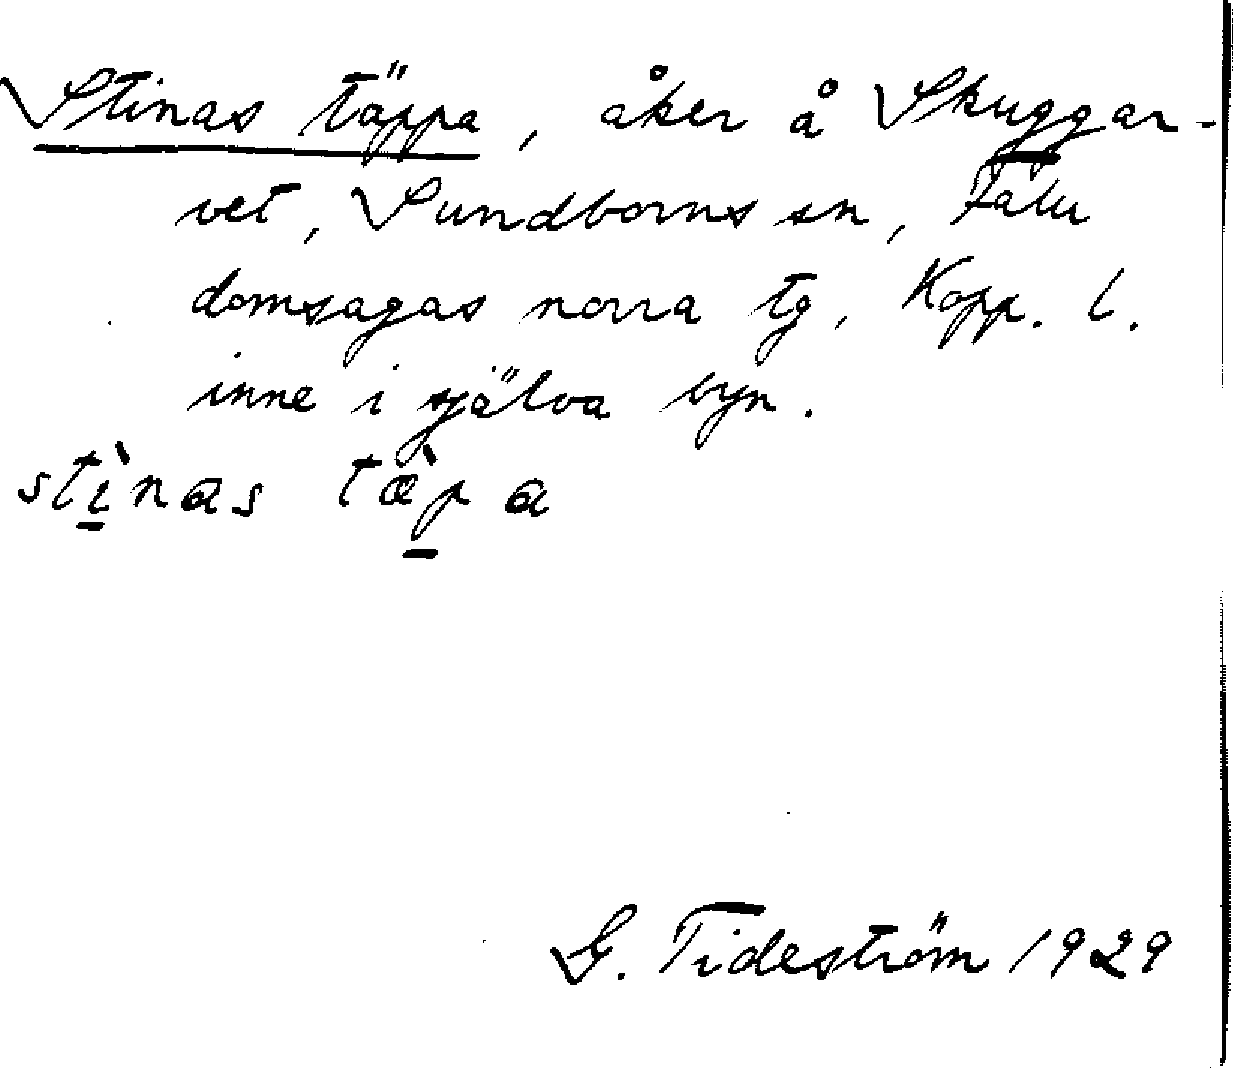 Stinas täppa, åker å Skuggar-
vet, Sundborns sn, Falu
domsagas norra tg, Kopp. l.
inne i själva byn.
stì̠nas tæ̀p̠a
G. Tideström 1929